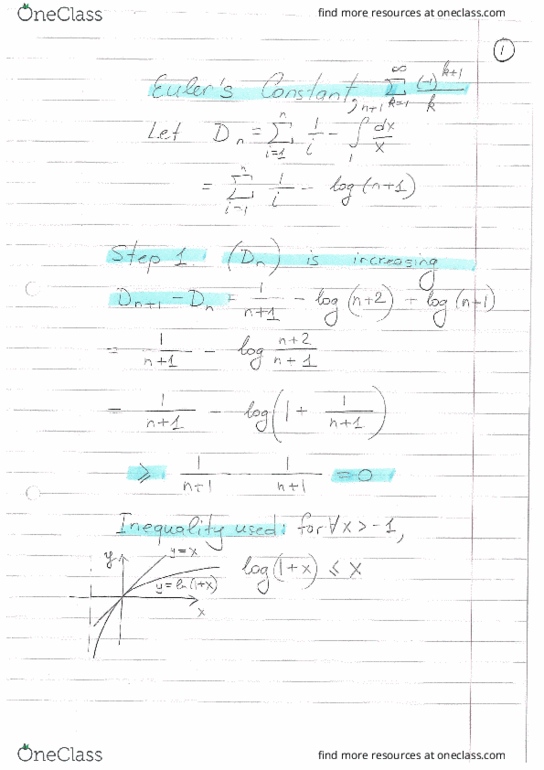 OneClass
find more resources at oneclass.com
1
Euler's Constant, ∑_{k=1}^{∞} (-1)^{k+1}/k
Let D_n = ∑_{i=1}^{n} 1/i - ∫_1^{n+1} dx/x
= ∑_{i=1}^{n} 1/i - log(n+1)
Step 1. (D_n) is increasing
D_{n+1} - D_n = 1/(n+1) - log(n+2) + log(n+1)
= 1/(n+1) - log (n+2)/(n+1)
= 1/(n+1) - log(1 + 1/(n+1))
⩾ 1/(n+1) - 1/(n+1) = 0
Inequality used: for ∀x > -1,
y y=x
log(1+x) ⩽ x
y=ln(1+x)
x
OneClass
find more resources at oneclass.com